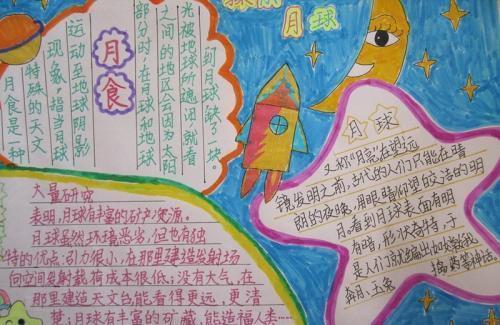 月球
月食
月食是一种
特殊的天文
现象,指当月球
运动至地球阴影
部分时,在月球和地球
之间的地区会因为太阳
光被地球所遮闭就看
到月球缺了一块。
月球
又称"月亮"在望远
镜发明之前,古代的人们只能在晴
朗的夜晚,用眼睛仰望皎洁的明
月。看到月球表面有明
有暗,形状奇特,于
是人们就编出如嫦娥
奔月、玉兔捣药等神话。
大量研究
表明,月球有丰富的矿产资源。
月球虽然环境恶劣,但也有独
特的优点:引力很小,在那里建造发射场
向空间发射载荷成本很低;没有大气,在
那里建造天文台能看得更远,更清
楚;月球有丰富的矿藏,能造福人类……